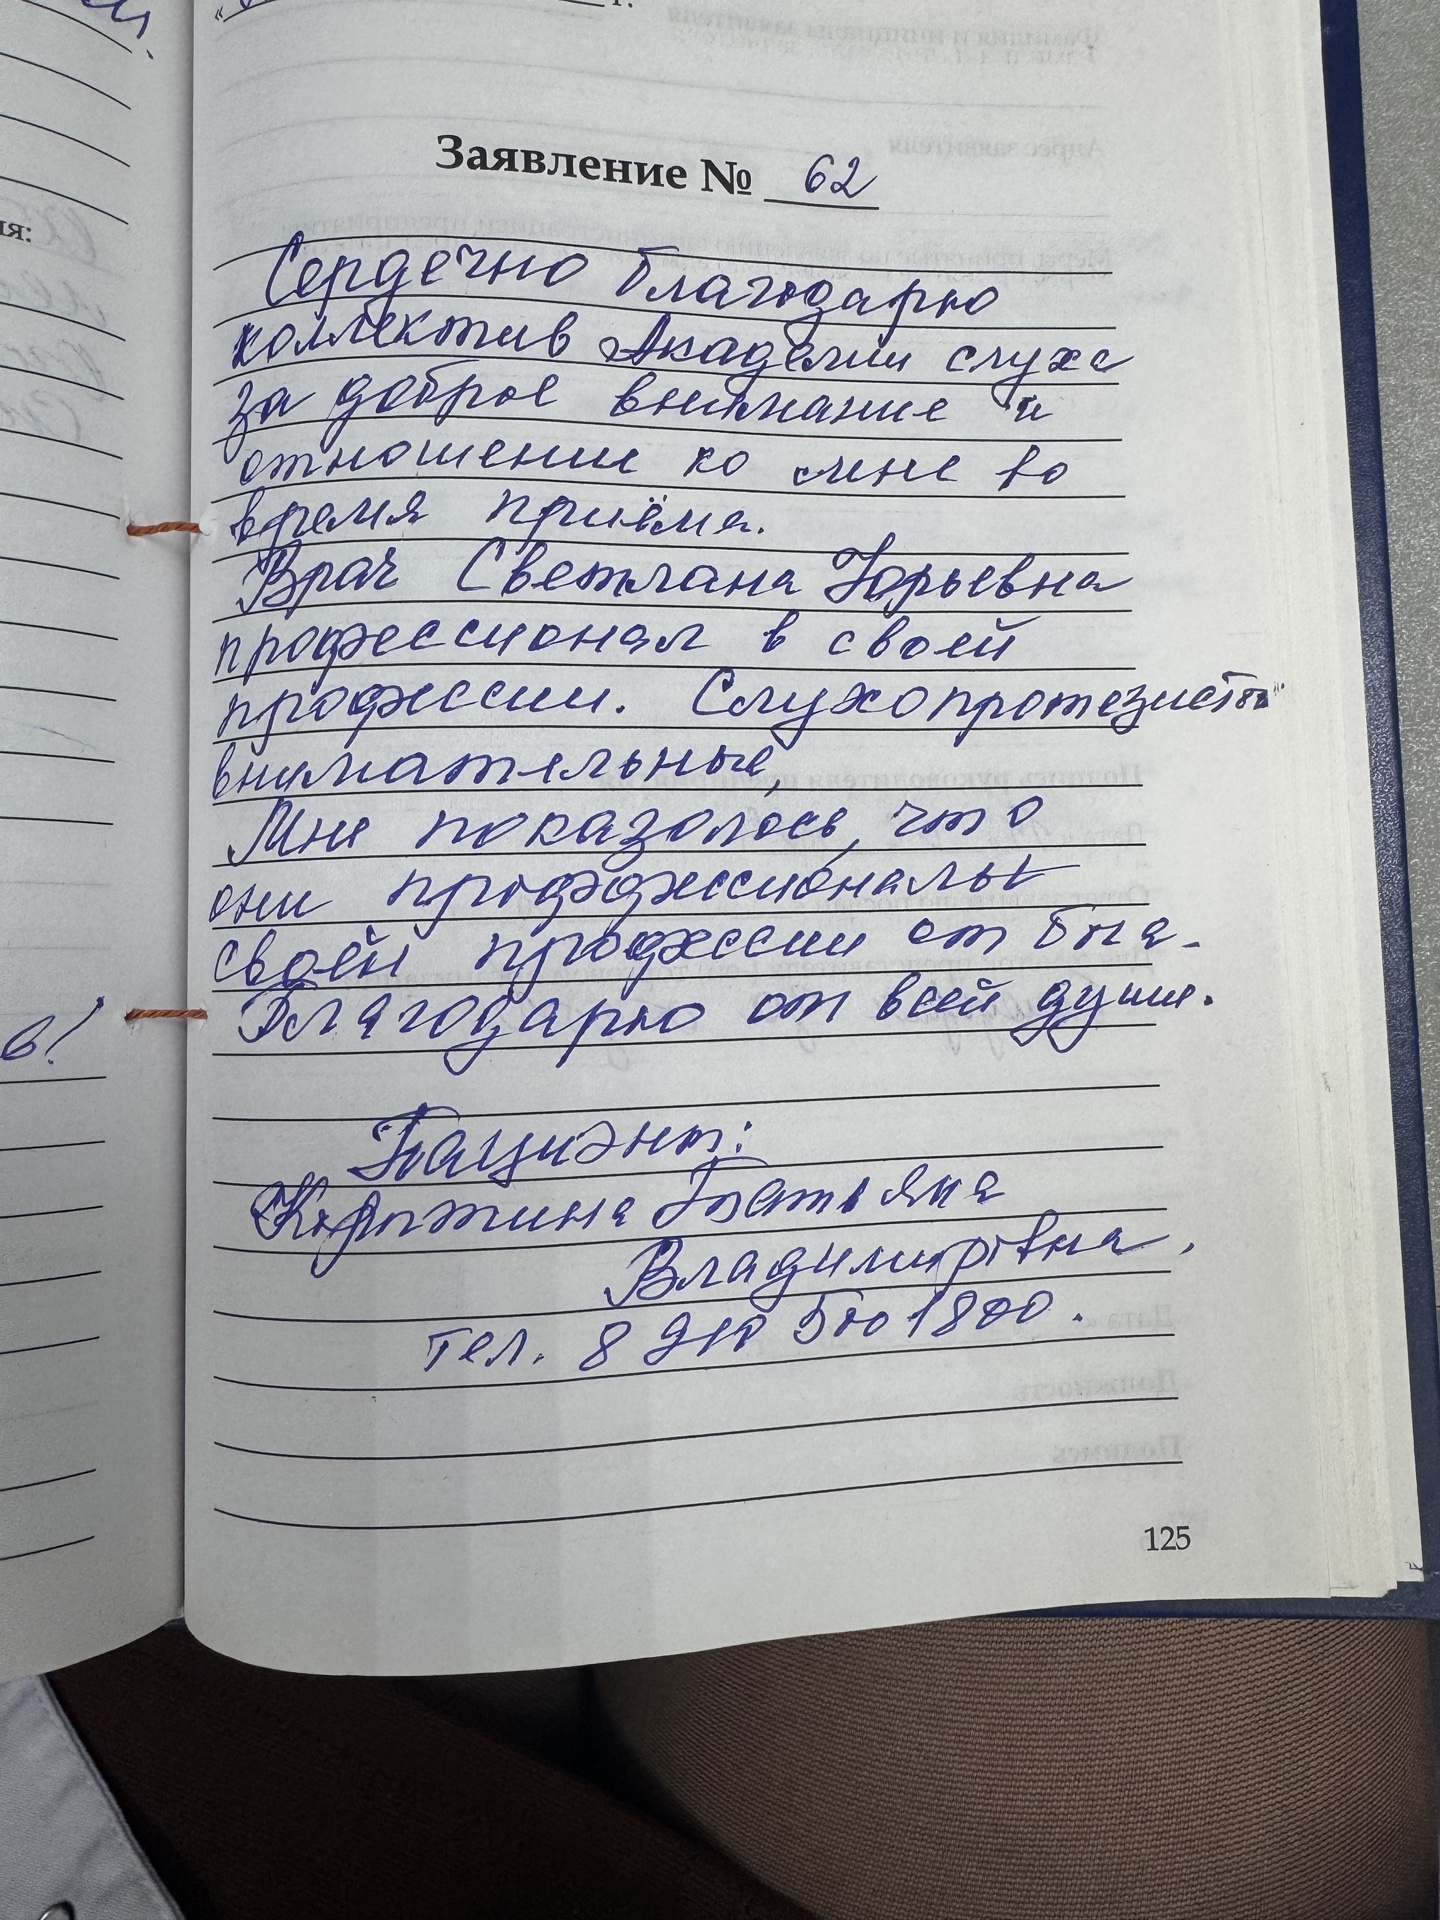 Заявление № 62
Сердечно благодарю
коллектив Академии слуха
за доброе внимание и
отношение ко мне во
время приёма.
Врач Светлана Юрьевна
профессионал в своей
профессии. Слухопротезисты
внимательные,
Мне показалось, что
они профессионалы
своей профессии от бга.
Благодарю от всей души.
Пациэнт:
Татьяна
Владимировна.
тел. 8
125